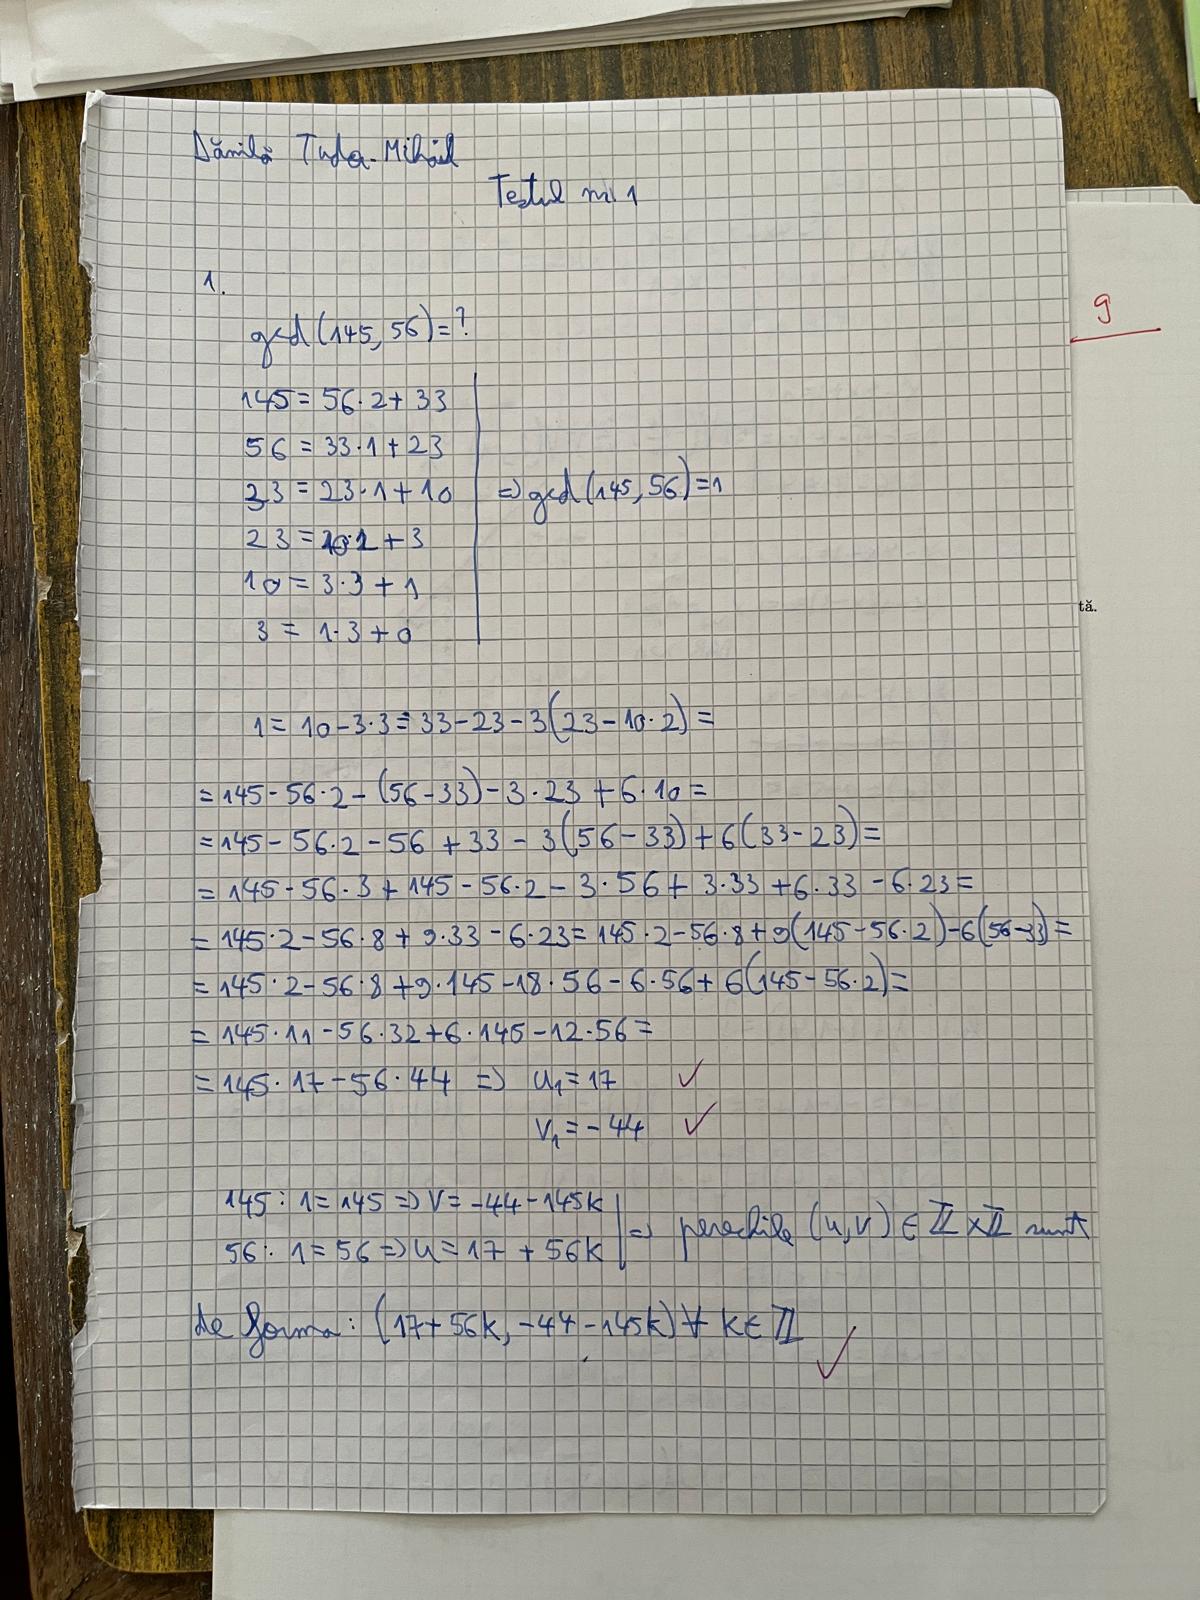 Dănilă Tudor-Mihail
Testul nr. 1
1.
gcd(145, 56) = ?
145 = 56·2 + 33
56 = 33·1 + 23
33 = 23·1 + 10
=> gcd(145, 56) = 1
23 = 10·2 + 3
10 = 3·3 + 1
3 = 1·3 + 0
1 = 10 - 3·3 = 33 - 23 - 3(23 - 10·2) =
= 145 - 56·2 - (56 - 33) - 3·23 + 6·10 =
= 145 - 56·2 - 56 + 33 - 3(56 - 33) + 6(33 - 23) =
= 145 - 56·3 + 145 - 56·2 - 3·56 + 3·33 + 6·33 - 6·23 =
= 145·2 - 56·8 + 9·33 - 6·23 = 145·2 - 56·8 + 9(145 - 56·2) - 6(56 - 33) =
= 145·2 - 56·8 + 9·145 - 18·56 - 6·56 + 6(145 - 56·2) =
= 145·11 - 56·32 + 6·145 - 12·56 =
= 145·17 - 56·44 => u₁ = 17 ✓
v₁ = -44 ✓
145 : 1 = 145 => v = -44 - 145k
56 : 1 = 56 => u = 17 + 56k
=> perechile (u, v) ∈ ℤ×ℤ sunt
de forma: (17 + 56k, -44 - 145k) ∀ k ∈ ℤ
✓
9
tă.